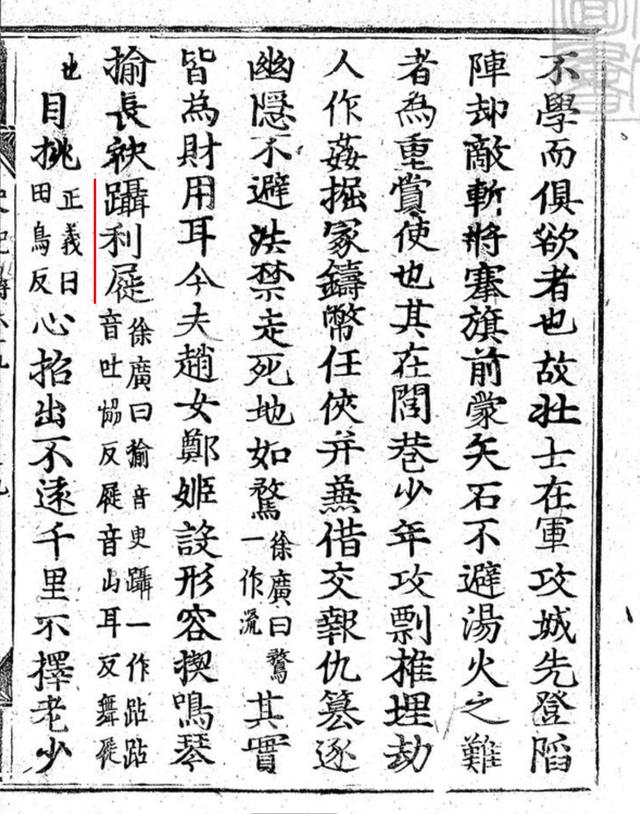 不學而俱欲者也故壯士在軍攻城先登陷
陣却敵斬將搴旗前蒙矢石不避湯火之難
者為重賞使也其在閭巷少年攻剽推埋劫
人作姦掘冢鑄幣任俠并兼借交報仇篡逐
幽隱不避法禁走死地如騖徐廣曰騖一作流其實
皆為財用耳今夫趙女鄭姬設形容揳鳴琴
揄長袂躡利屣徐廣曰揄音臾躡一作跕跕音吐協反屣音山耳反舞屣
也目挑正義曰田鳥反心招出不遠千里不擇老少